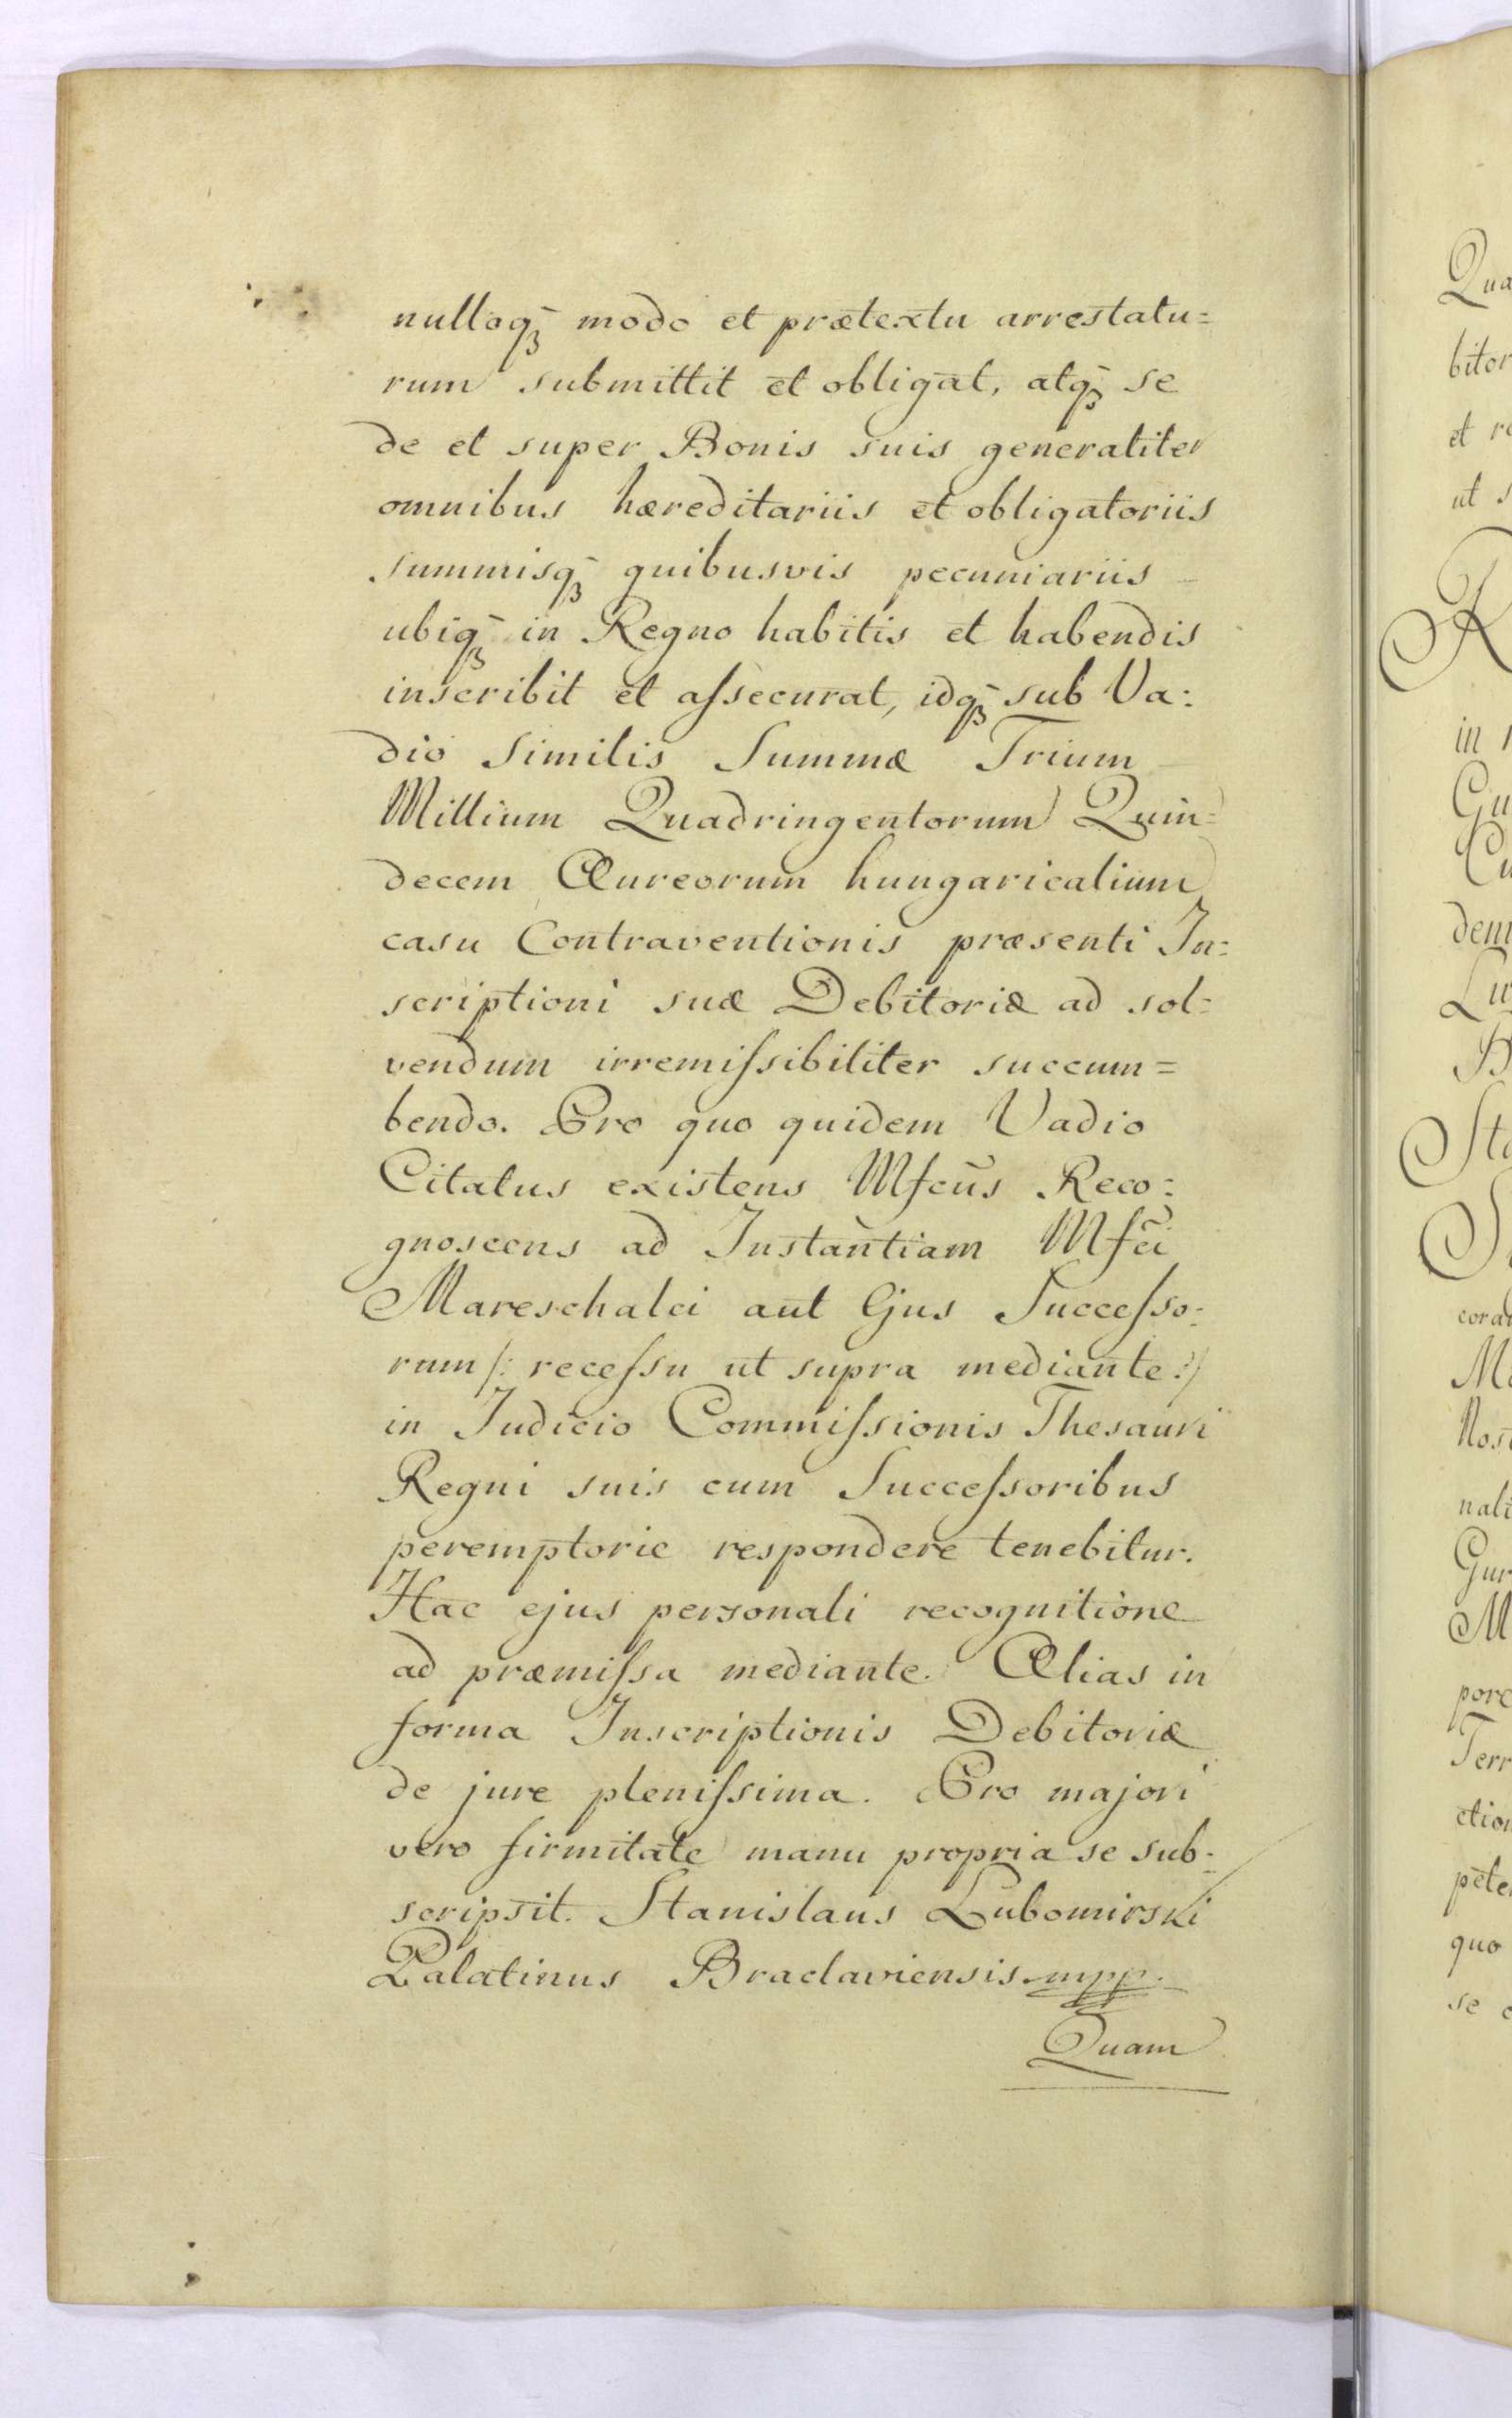 nulloq̃ modo et prætextu arrestatu=
rum submittit et obligat, atq̃ se
de et super Bonis suis generaliter
omnibus hæreditariis et obligatoriis
summisq̃ quibusvis pecuniariis
ubiq̃ in Regno habitis et habendis
inscribit et aſsecurat, idq̃ sub Va:
dio Similis Summæ Trium
Millium Quadringentorum Quin=
decem Aureorum hungaricalium
casu Contraventionis præsenti In=
scriptioni suæ Debitoriæ ad sol=
vendum irremiſsibiliter succum=
bendo. Pro quo quidem Vadio
Citatus existens Mfcũs Reco:
gnoscens ad Instantiam Mfc̃i
Mareschalci aut Ejus Succeſso:
rum /: receſsu ut supra mediante :/
in Judicio Commiſsionis Thesauri
Regni suis cum Succeſsoribus
peremptorie respondere tenebitur.
Hac ejus personali recognitione
ad præmiſsa mediante. Alias in
forma Inscriptionis Debitoriæ
de jure pleniſsima. Pro majori
vero firmitate manu propria se sub=
scripsit. Stanislaus Lubomirski
Palatinus Braclaviensis mpp.
Quam
Qua
bitor
ut s
in
Gu
dem
Lu
Sta
corar
nali
Gur
pore
Terr
ction
peter
quo
se